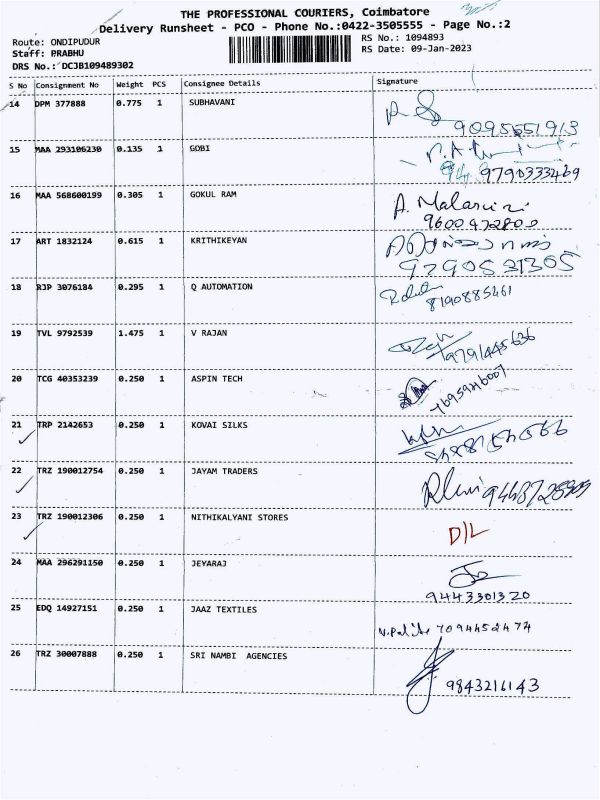 THE PROFESSIONAL COURIERS, Coimbatore
Delivery Runsheet - PCO - Phone No.:0422-3505555 - Page No.:2
Route: ONDIPUDUR
RS No.: 1094893
Staff: PRABHU
RS Date: 09-Jan-2023
DRS No.: DCJB109489302
S No Consignment No Weight PCS Consignee Details Signature
14 DPM 377888 0.775 1 SUBHAVANI
9095651913
15 MAA 293106230 0.135 1 GOBI
9790333469
16 MAA 568600199 0.305 1 GOKUL RAM A.
9600472800
17 ART 1832124 0.615 1 KRITHIKEYAN
9790531305
18 RJP 3076184 0.295 1 Q AUTOMATION
8190885461
19 TVL 9792539 1.475 1 V RAJAN
9791445636
20 TCG 40353239 0.250 1 ASPIN TECH
21 TRP 2142653 0.250 1 KOVAI SILKS
22 TRZ 190012754 0.250 1 JAYAM TRADERS
23 TRZ 190012306 0.250 1 NITHIKALYANI STORES D/L
24 MAA 296291150 0.250 1 JEYARAJ
9443301320
25 EDQ 14927151 0.250 1 JAAZ TEXTILES
7094452474
26 TRZ 30007888 0.250 1 SRI NAMBI AGENCIES
9843216143